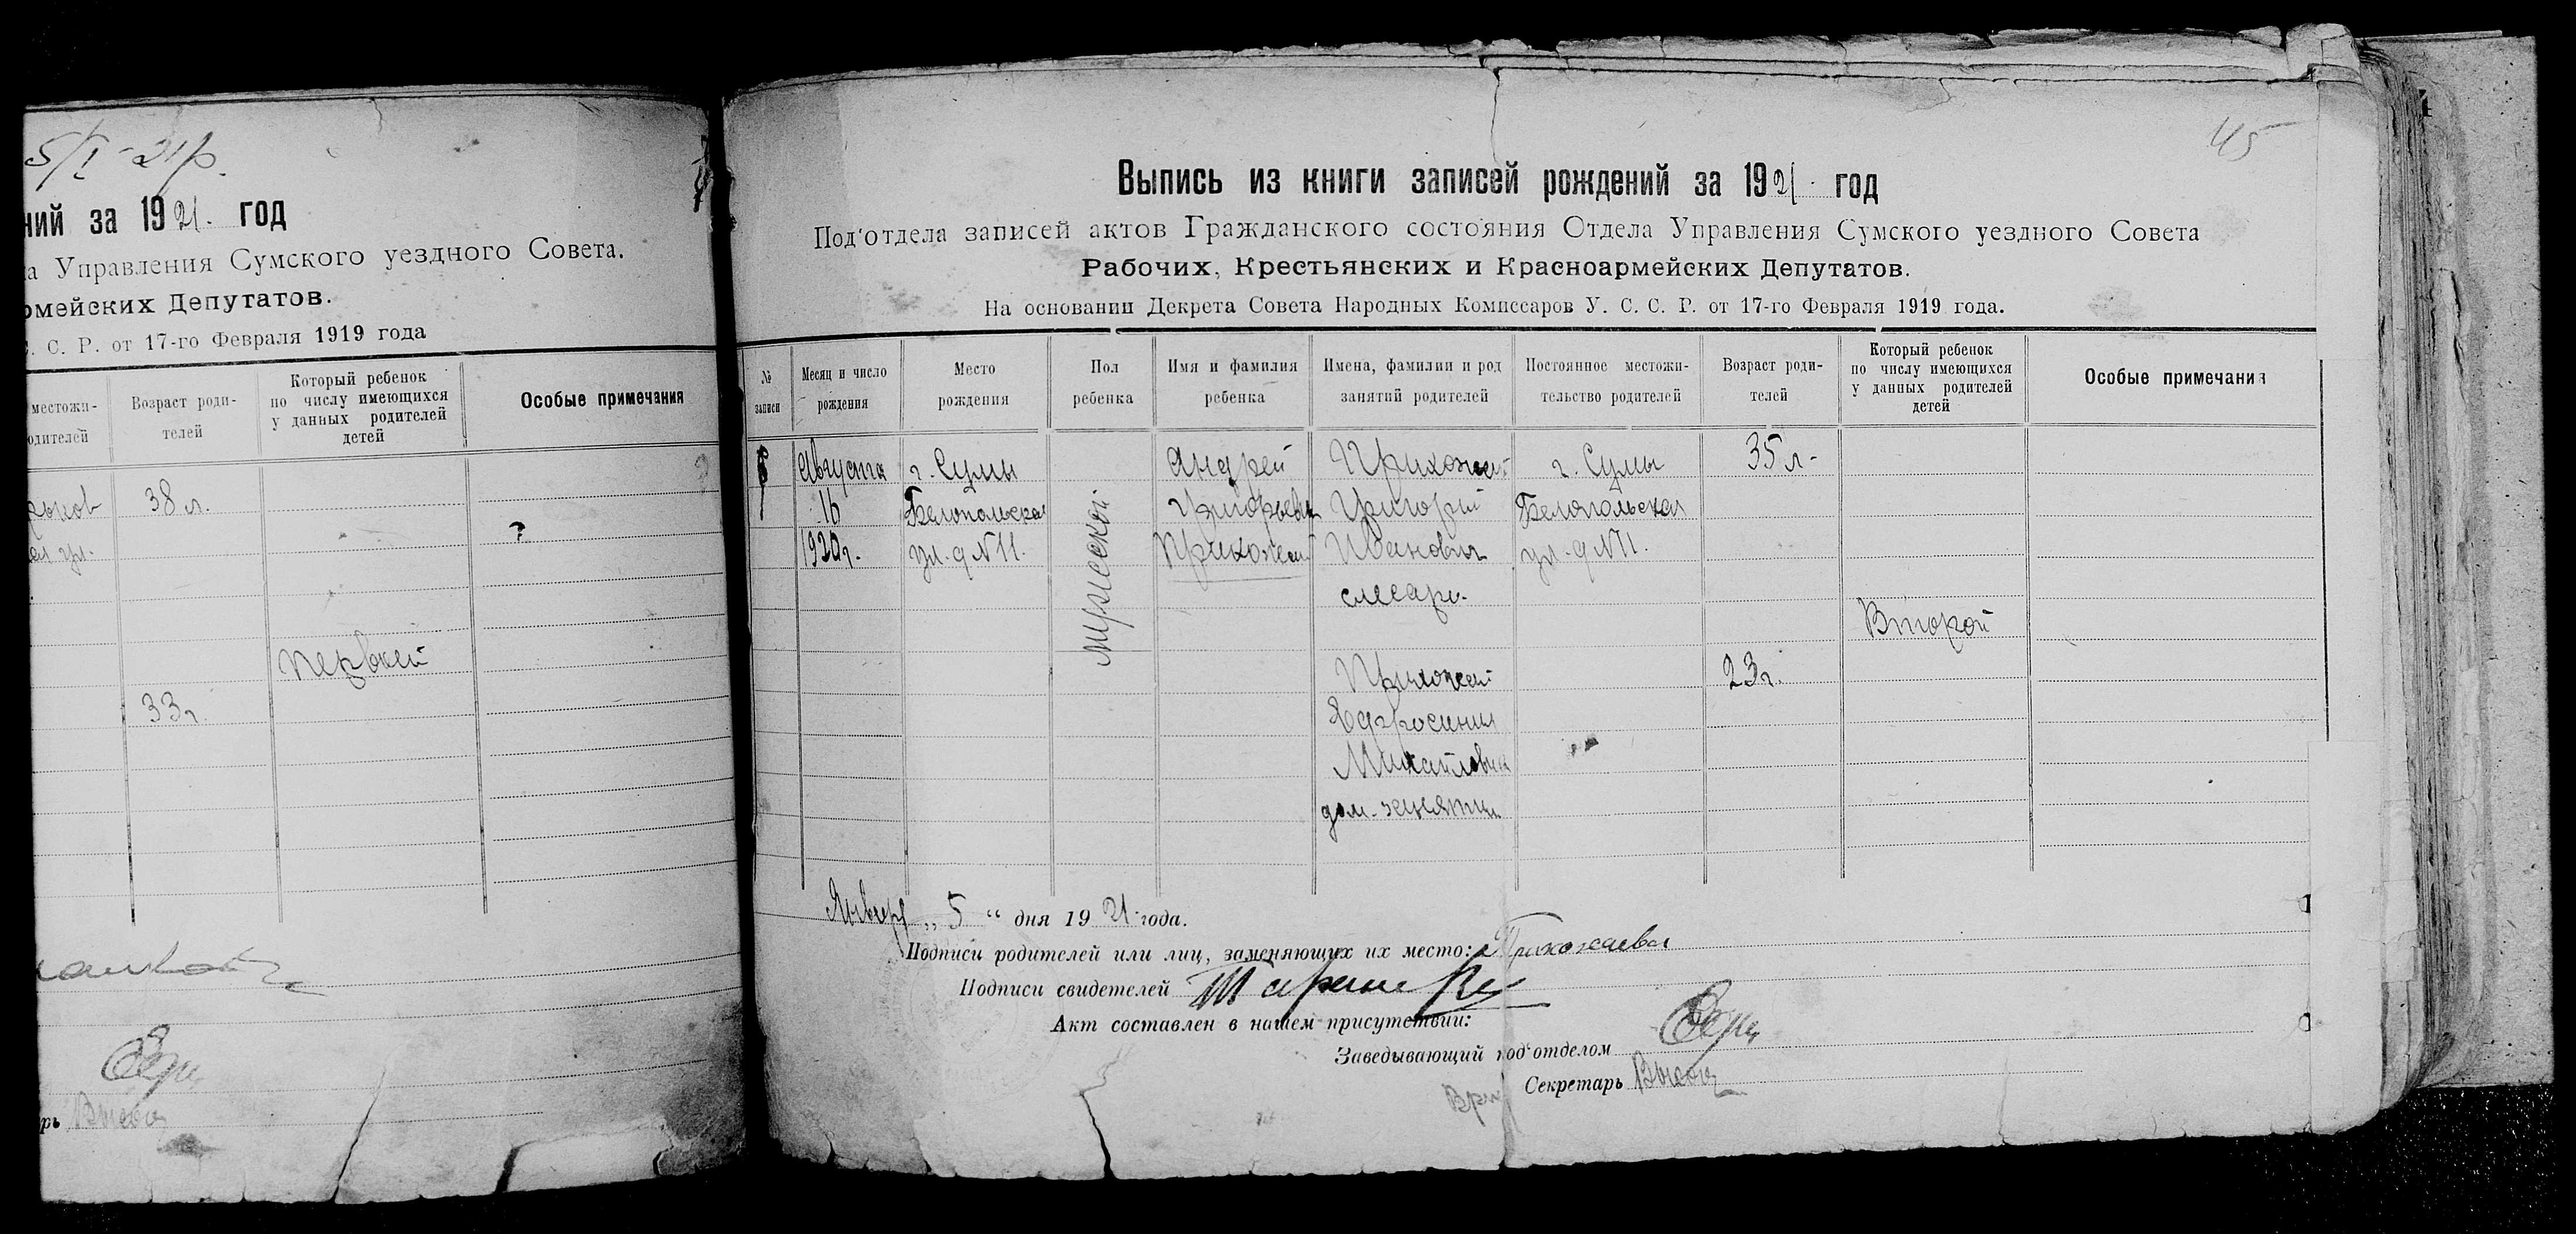 5/I-21 р.
ний за 1921. год
а Управления Сумского уездного Совета.
рмейских Депутатов.
С. С. Р. от 17-го Февраля 1919 года
местожи-
одителей
Возраст роди-
телей
Который ребенок
по числу имеющихся
у данных родителей
детей
Особые примечания
38 л.
ая ул.
?
первый
33 г.
рь
45
Выпись из книги записей рождений за 1921. год
Под'отдела записей актов Гражданского состояния Отдела Управления Сумского уездного Совета
Рабочих, Крестьянских и Красноармейских Депутатов.
На основании Декрета Совета Народных Комиссаров У. С. С. Р. от 17-го Февраля 1919 года.
№
записи
Месяц и число
рождения
Место
рождения
Пол
ребенка
Имя и фамилия
ребенка
Имена, фамилии и род
занятий родителей
Постоянное местожи-
тельство родителей
Возраст роди-
телей
Который ребенок
по числу имеющихся
у данных родителей
детей
Особые примечания
Августа
16
1920 г.
г. Сумы
Белопольская
ул. д N 11.
мужеской
Андрей
Григорьевич
Прихожей
Прихожей
Григорий
Иванович
слесарь
Прихожей
Ефросиния
Михайловна
дом. занятия
г. Сумы
Белопольская
ул. д N 11.
35 л.
23 г.
Второй
Январь „ 5 “ дня 1921 года.
Подписи родителей или лиц, заменяющих их место: Прихожаева
Подписи свидетелей
Акт составлен в нашем присутствии:
Заведывающий под'отделом
Секретарь